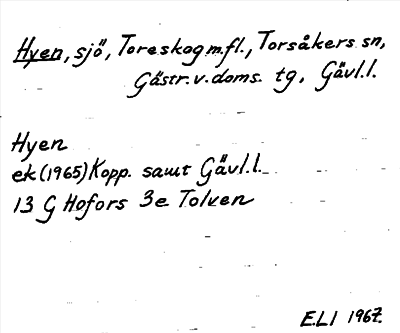 Hyen, sjö, Toreskog m.fl., Torsåkers sn,
Gästr. v. doms. tg, Gävl.l.
Hyen
ek (1965) Kopp. samt Gävl.l.
13 G Hofors 3e Tolven
E.L.I 1967.